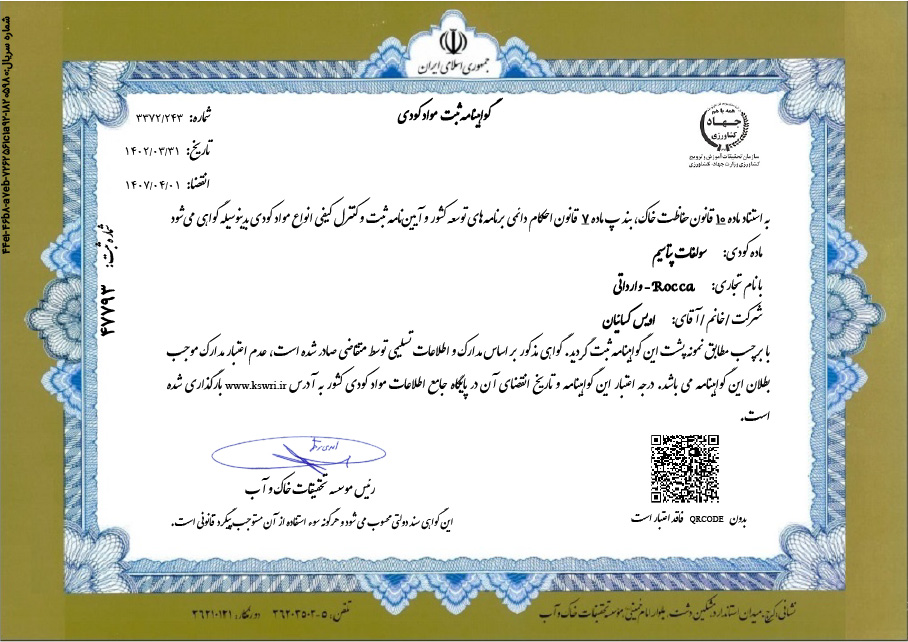 جمهوری اسلامی ایران
گواهینامه ثبت مواد کودی
همه با هم
جهاد
کشاورزی
سازمان تحقیقات، آموزش و ترویج
کشاورزی وزارت جهاد کشاورزی
شماره: ۳۳۷۲/۲۴۳
تاریخ: ۱۴۰۲/۰۳/۳۱
انقضا: ۱۴۰۷/۰۴/۰۱
به استناد ماده ۱۰ قانون حفاظت خاک، بند پ ماده ۷ قانون احکام دائمی برنامه های توسعه کشور و آیین نامه ثبت و کنترل کیفی انواع مواد کودی بدینوسیله گواهی می شود
ماده کودی: سولفات پتاسیم
با نام تجاری: Rocca - وارداتی
شرکت / خانم / آقای: اویس کسائیان
با برچسب مطابق نمونه پشت این گواهینامه ثبت گردید. گواهی مذکور بر اساس مدارک و اطلاعات تسلیمی توسط متقاضی صادر شده است، عدم اعتبار مدارک موجب
بطلان این گواهینامه می باشد. درجه اعتبار این گواهینامه و تاریخ انقضای آن در پایگاه جامع اطلاعات مواد کودی کشور به آدرس www.kswri.ir بارگذاری شده
است.
شماره ثبت: ۴۷۷۹۳
رئیس موسسه تحقیقات خاک و آب
بدون QRCODE فاقد اعتبار است
این گواهی سند دولتی محسوب می شود و هرگونه سوء استفاده از آن مستوجب پیگرد قانونی است.
نشانی: کرج، میدان استاندارد، مشکین دشت، بلوار امام خمینی، موسسه تحقیقات خاک و آب
تلفن: ۵-۳۶۲۰۳۵۰۳ دورنگار: ۳۶۲۱۰۱۲۱